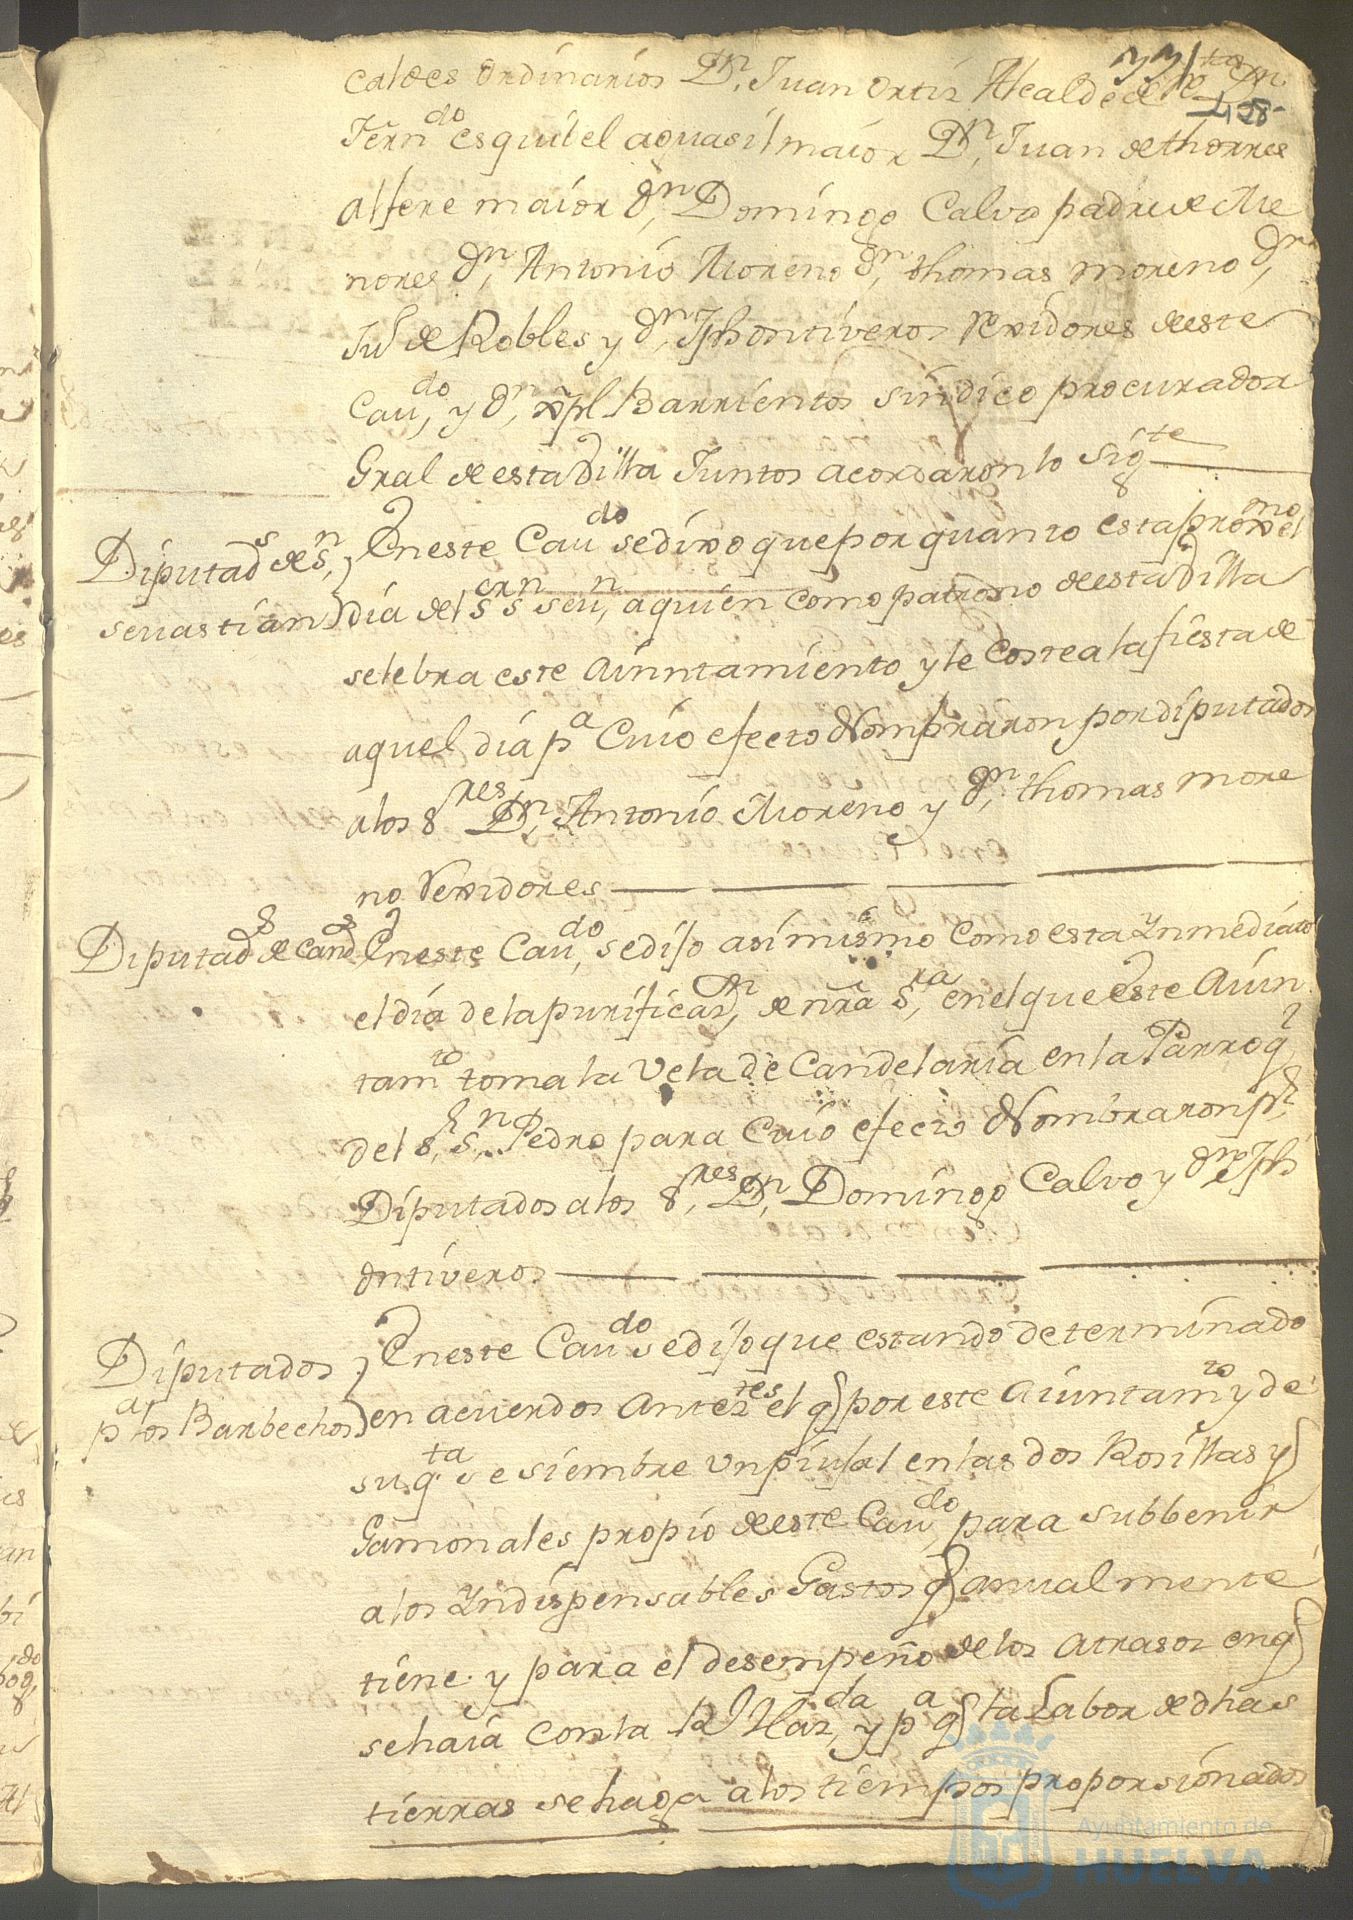 caldes Ordinarios Dn. Juan Ortiz Alcalde de
Fern.do esquibel aguasil maior Dn. Juan de thorres
alfere maior Dn. Domingo Calvo padre de Me
nores Dn. Antonio Moreno Dn. thomas moreno Dn.
Ju.l de Robles y Dn. Jph ontiveros Rexidores de este
Cau.do y Dn. xpl Barrientos síndico procurador
Gral de esta Villa Juntos acordaron lo sig.te
Diputad.s de s.n
sevastian
En este Cau.do se dixo que por quanto esta proxmo el
dia del s.r s.n Seu.n a quien como patrono de esta Villa
selebra este Aiuntamiento y le Costea la fiesta de
aquel dia p.a Cuio efecto Nompraron por diputados
a los S.res Dn. Antonio Moreno y Dn. thomas more
no Rexidores
Diputad.s de cand.s
En este Cau.do se dijo asimismo Como esta Ynmediato
el dia de la purificaz.n de nra s.ra en el que este Aiun
tam.to toma la Vela de Candelaria en la Parroq.l
del S.r S.n Pedro para Cuio efecto Nombraron p.r
Diputados a los S.res Dn. Domingo Calvo y Dn. Jph
Ontiveros
Diputados
p.a los Barbechos
En este Cau.do se dijo que estando determinado
en acuerdos Anter.tes el q por este Aiuntam.to y de
su q.ta se siembre un piujal en las dos Rosillas y
Gamonales propio de este Cau.do para subbenir
a los Yndispensables Gastos q anualmente
tiene y para el desempeño de los Atrasos en q
se haia con la Rl Haz.da y p.a q la Labor de dhas
tierras se haga a los tiempos proporsionados
Ayuntamiento de
HUELVA